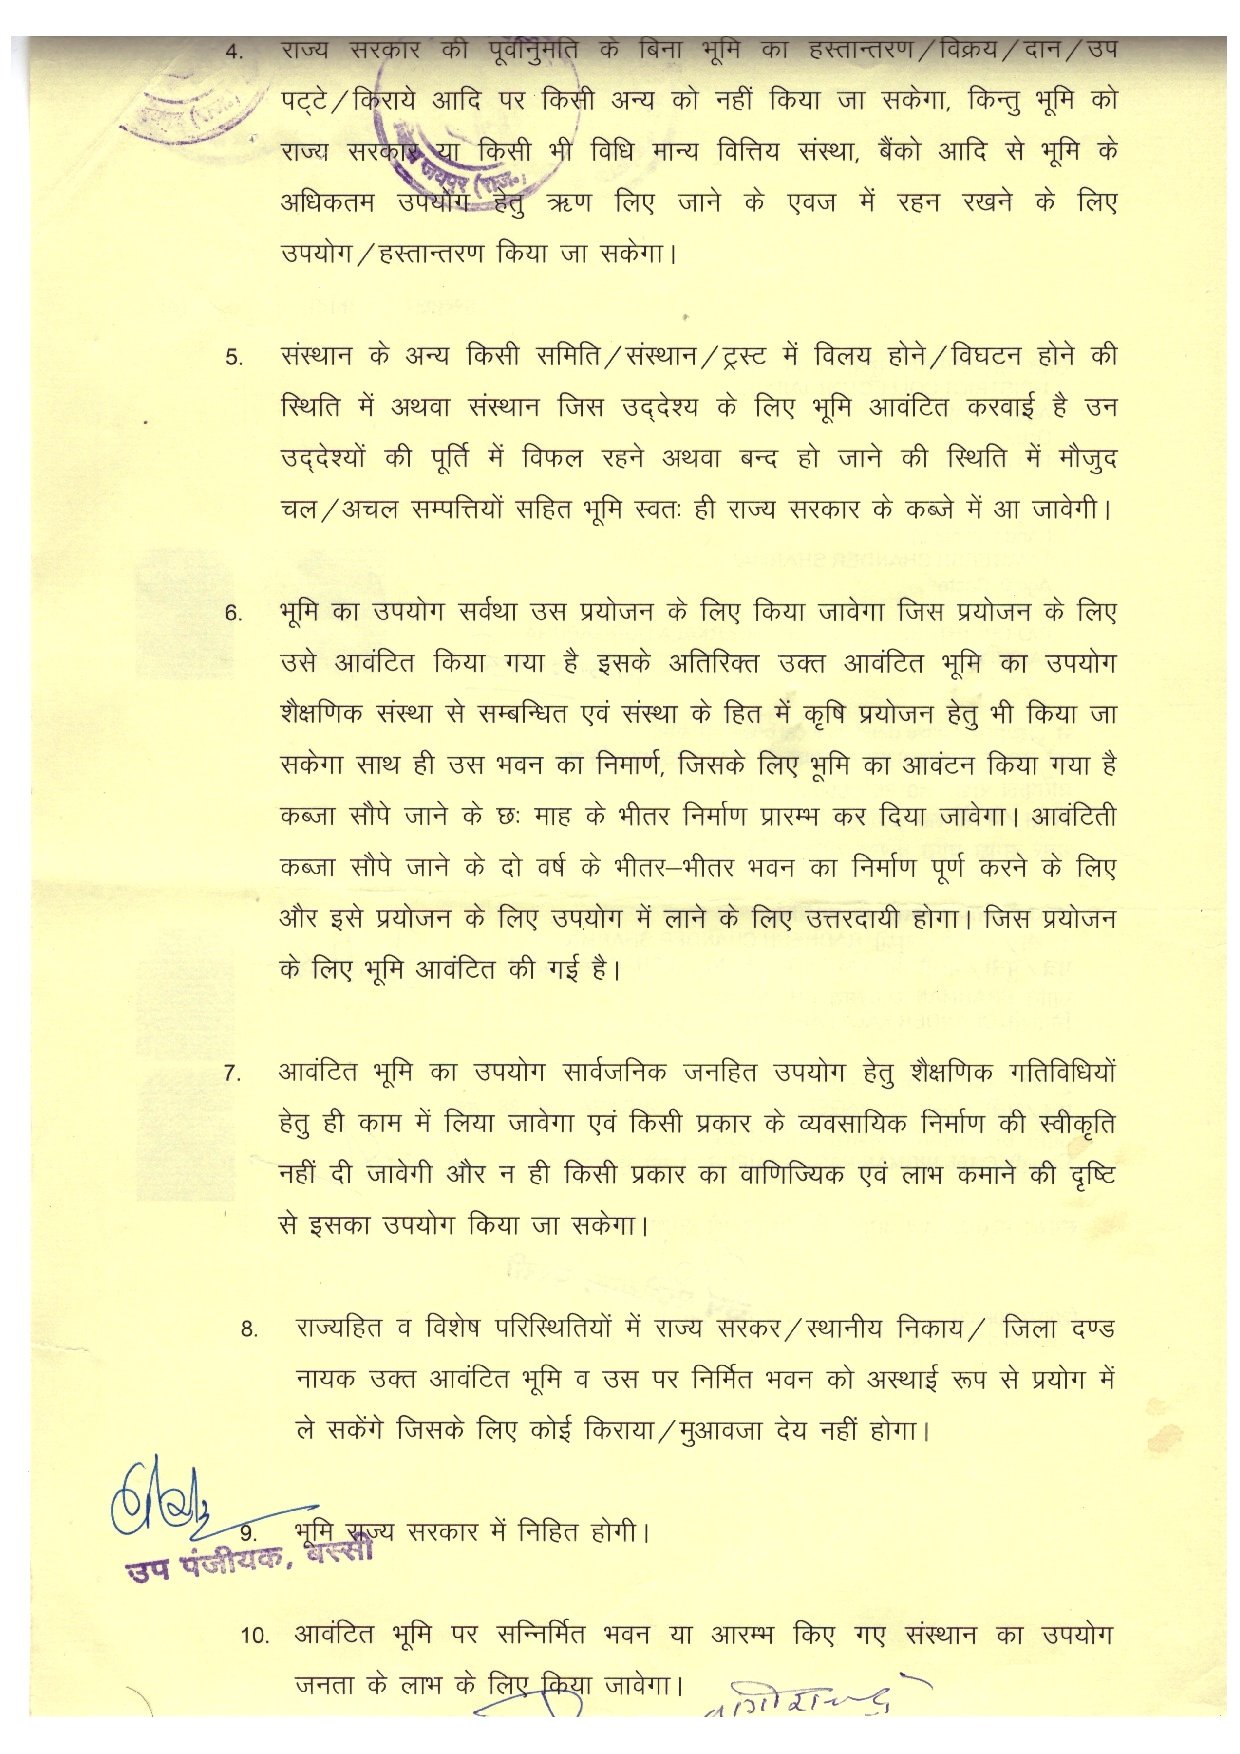 4. राज्य सरकार की पूर्वानुमति के बिना भूमि का हस्तान्तरण/विक्रय/दान/उप
पट्टे/किराये आदि पर किसी अन्य को नहीं किया जा सकेगा, किन्तु भूमि को
राज्य सरकार या किसी भी विधि मान्य वित्तिय संस्था, बैंको आदि से भूमि के
जयपुर (राज०)
अधिकतम उपयोग हेतु ऋण लिए जाने के एवज में रहन रखने के लिए
उपयोग/हस्तान्तरण किया जा सकेगा।
5. संस्थान के अन्य किसी समिति/संस्थान/ट्रस्ट में विलय होने/विघटन होने की
स्थिति में अथवा संस्थान जिस उद्देश्य के लिए भूमि आवंटित करवाई है उन
उद्देश्यों की पूर्ति में विफल रहने अथवा बन्द हो जाने की स्थिति में मौजुद
चल/अचल सम्पत्तियों सहित भूमि स्वतः ही राज्य सरकार के कब्जे में आ जावेगी।
6. भूमि का उपयोग सर्वथा उस प्रयोजन के लिए किया जावेगा जिस प्रयोजन के लिए
उसे आवंटित किया गया है इसके अतिरिक्त उक्त आवंटित भूमि का उपयोग
शैक्षणिक संस्था से सम्बन्धित एवं संस्था के हित में कृषि प्रयोजन हेतु भी किया जा
सकेगा साथ ही उस भवन का निमार्ण, जिसके लिए भूमि का आवंटन किया गया है
कब्जा सौपे जाने के छः माह के भीतर निर्माण प्रारम्भ कर दिया जावेगा। आवंटिती
कब्जा सौपे जाने के दो वर्ष के भीतर–भीतर भवन का निर्माण पूर्ण करने के लिए
और इसे प्रयोजन के लिए उपयोग में लाने के लिए उत्तरदायी होगा। जिस प्रयोजन
के लिए भूमि आवंटित की गई है।
7. आवंटित भूमि का उपयोग सार्वजनिक जनहित उपयोग हेतु शैक्षणिक गतिविधियों
हेतु ही काम में लिया जावेगा एवं किसी प्रकार के व्यवसायिक निर्माण की स्वीकृति
नहीं दी जावेगी और न ही किसी प्रकार का वाणिज्यिक एवं लाभ कमाने की दृष्टि
से इसका उपयोग किया जा सकेगा।
8. राज्यहित व विशेष परिस्थितियों में राज्य सरकर/स्थानीय निकाय/ जिला दण्ड
नायक उक्त आवंटित भूमि व उस पर निर्मित भवन को अस्थाई रूप से प्रयोग में
ले सकेंगे जिसके लिए कोई किराया/मुआवजा देय नहीं होगा।
9. भूमि राज्य सरकार में निहित होगी।
उप पंजीयक, बस्सी
10. आवंटित भूमि पर सन्निर्मित भवन या आरम्भ किए गए संस्थान का उपयोग
जनता के लाभ के लिए किया जावेगा।